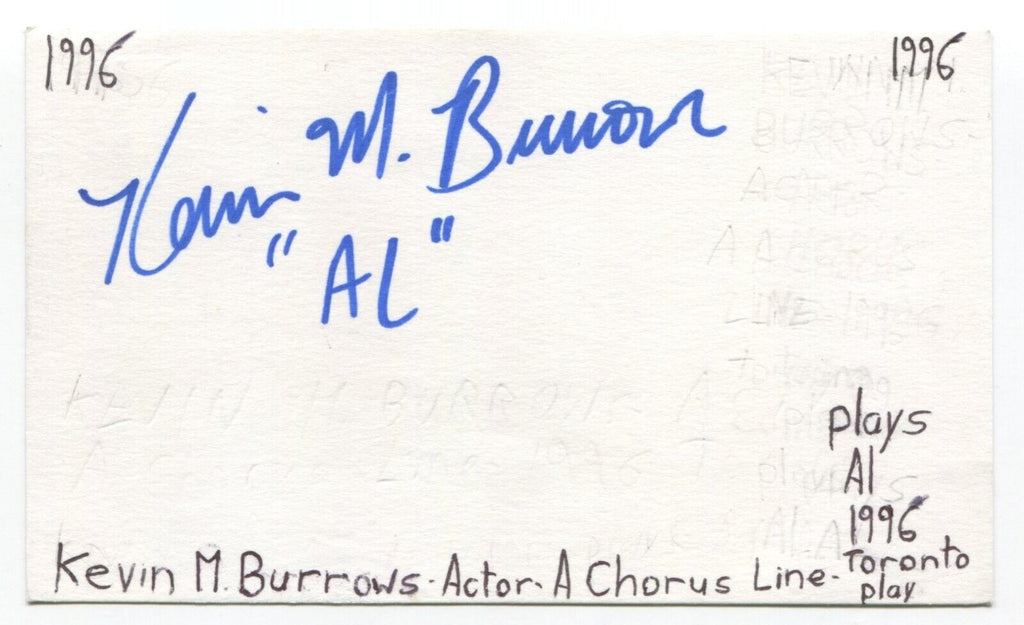 1996
1996
Kevin M. Burrows
"AL"
plays
Al
1996
Kevin M. Burrows - Actor - A Chorus Line - Toronto
play